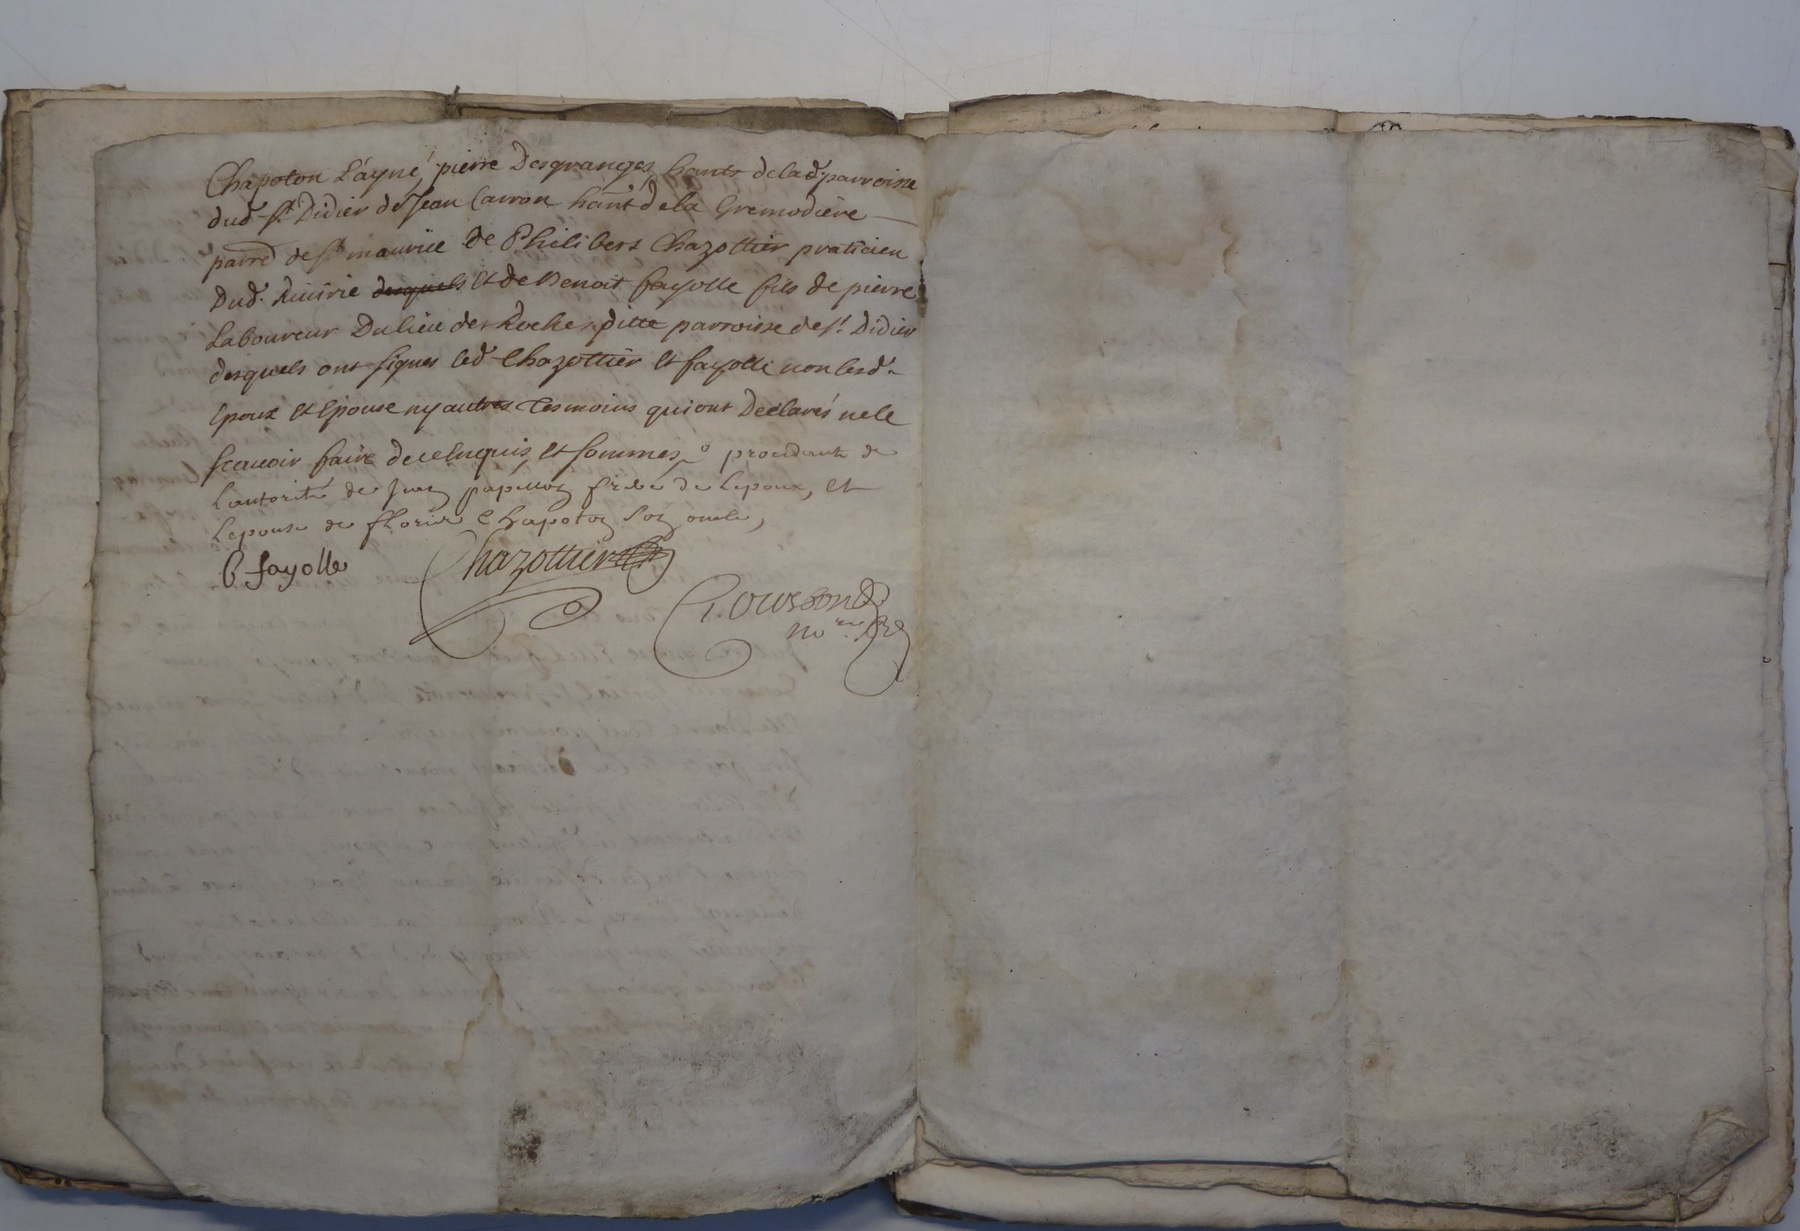 Chapoton L'ayné, pierre Desgranges hants de lad. parroisse
dud. st Didier de Jean Carron hant de la Gremodière
parrd de st maurice de Philibert Chazottier praticien
dud. Riuirie desquels et de Benoit fayolle fils de pierre
Laboureur Du lieu des Roches ditte parroisse de st. Didier
desquels ont signes led. Chazottier et fayolle non lesd.
Epoux et Epouse ny autres tesmoins qui ont declarés ne le
scauoir faire de ce Enquis et sommes procedants de
L'autorité de Jean papillon frere de Lepoux, et
Lepouse de fleurie Chapoton son oncle,
B fayolle Chazottier
Coursond
nore